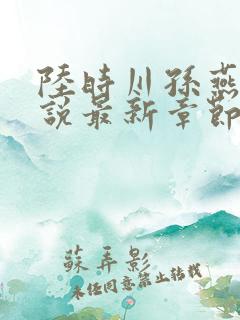 陸時川孫燕
說最新章節
蘇弄影
未经同意禁止转载